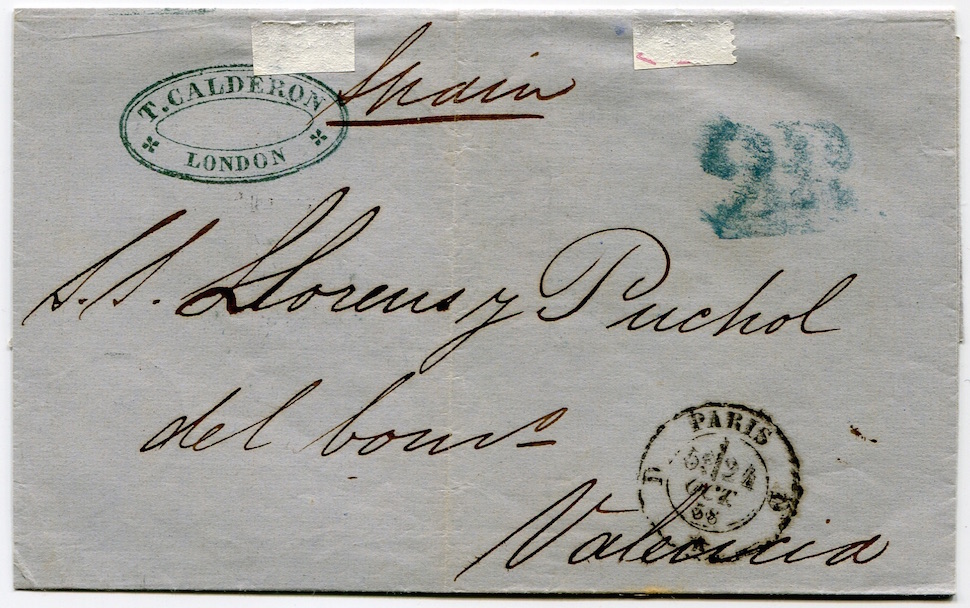 T. CALDERON
LONDON
Spain
2R
S.S. Llorens y Puchol
del comº
Valencia
PARIS
24
OCT
58
D